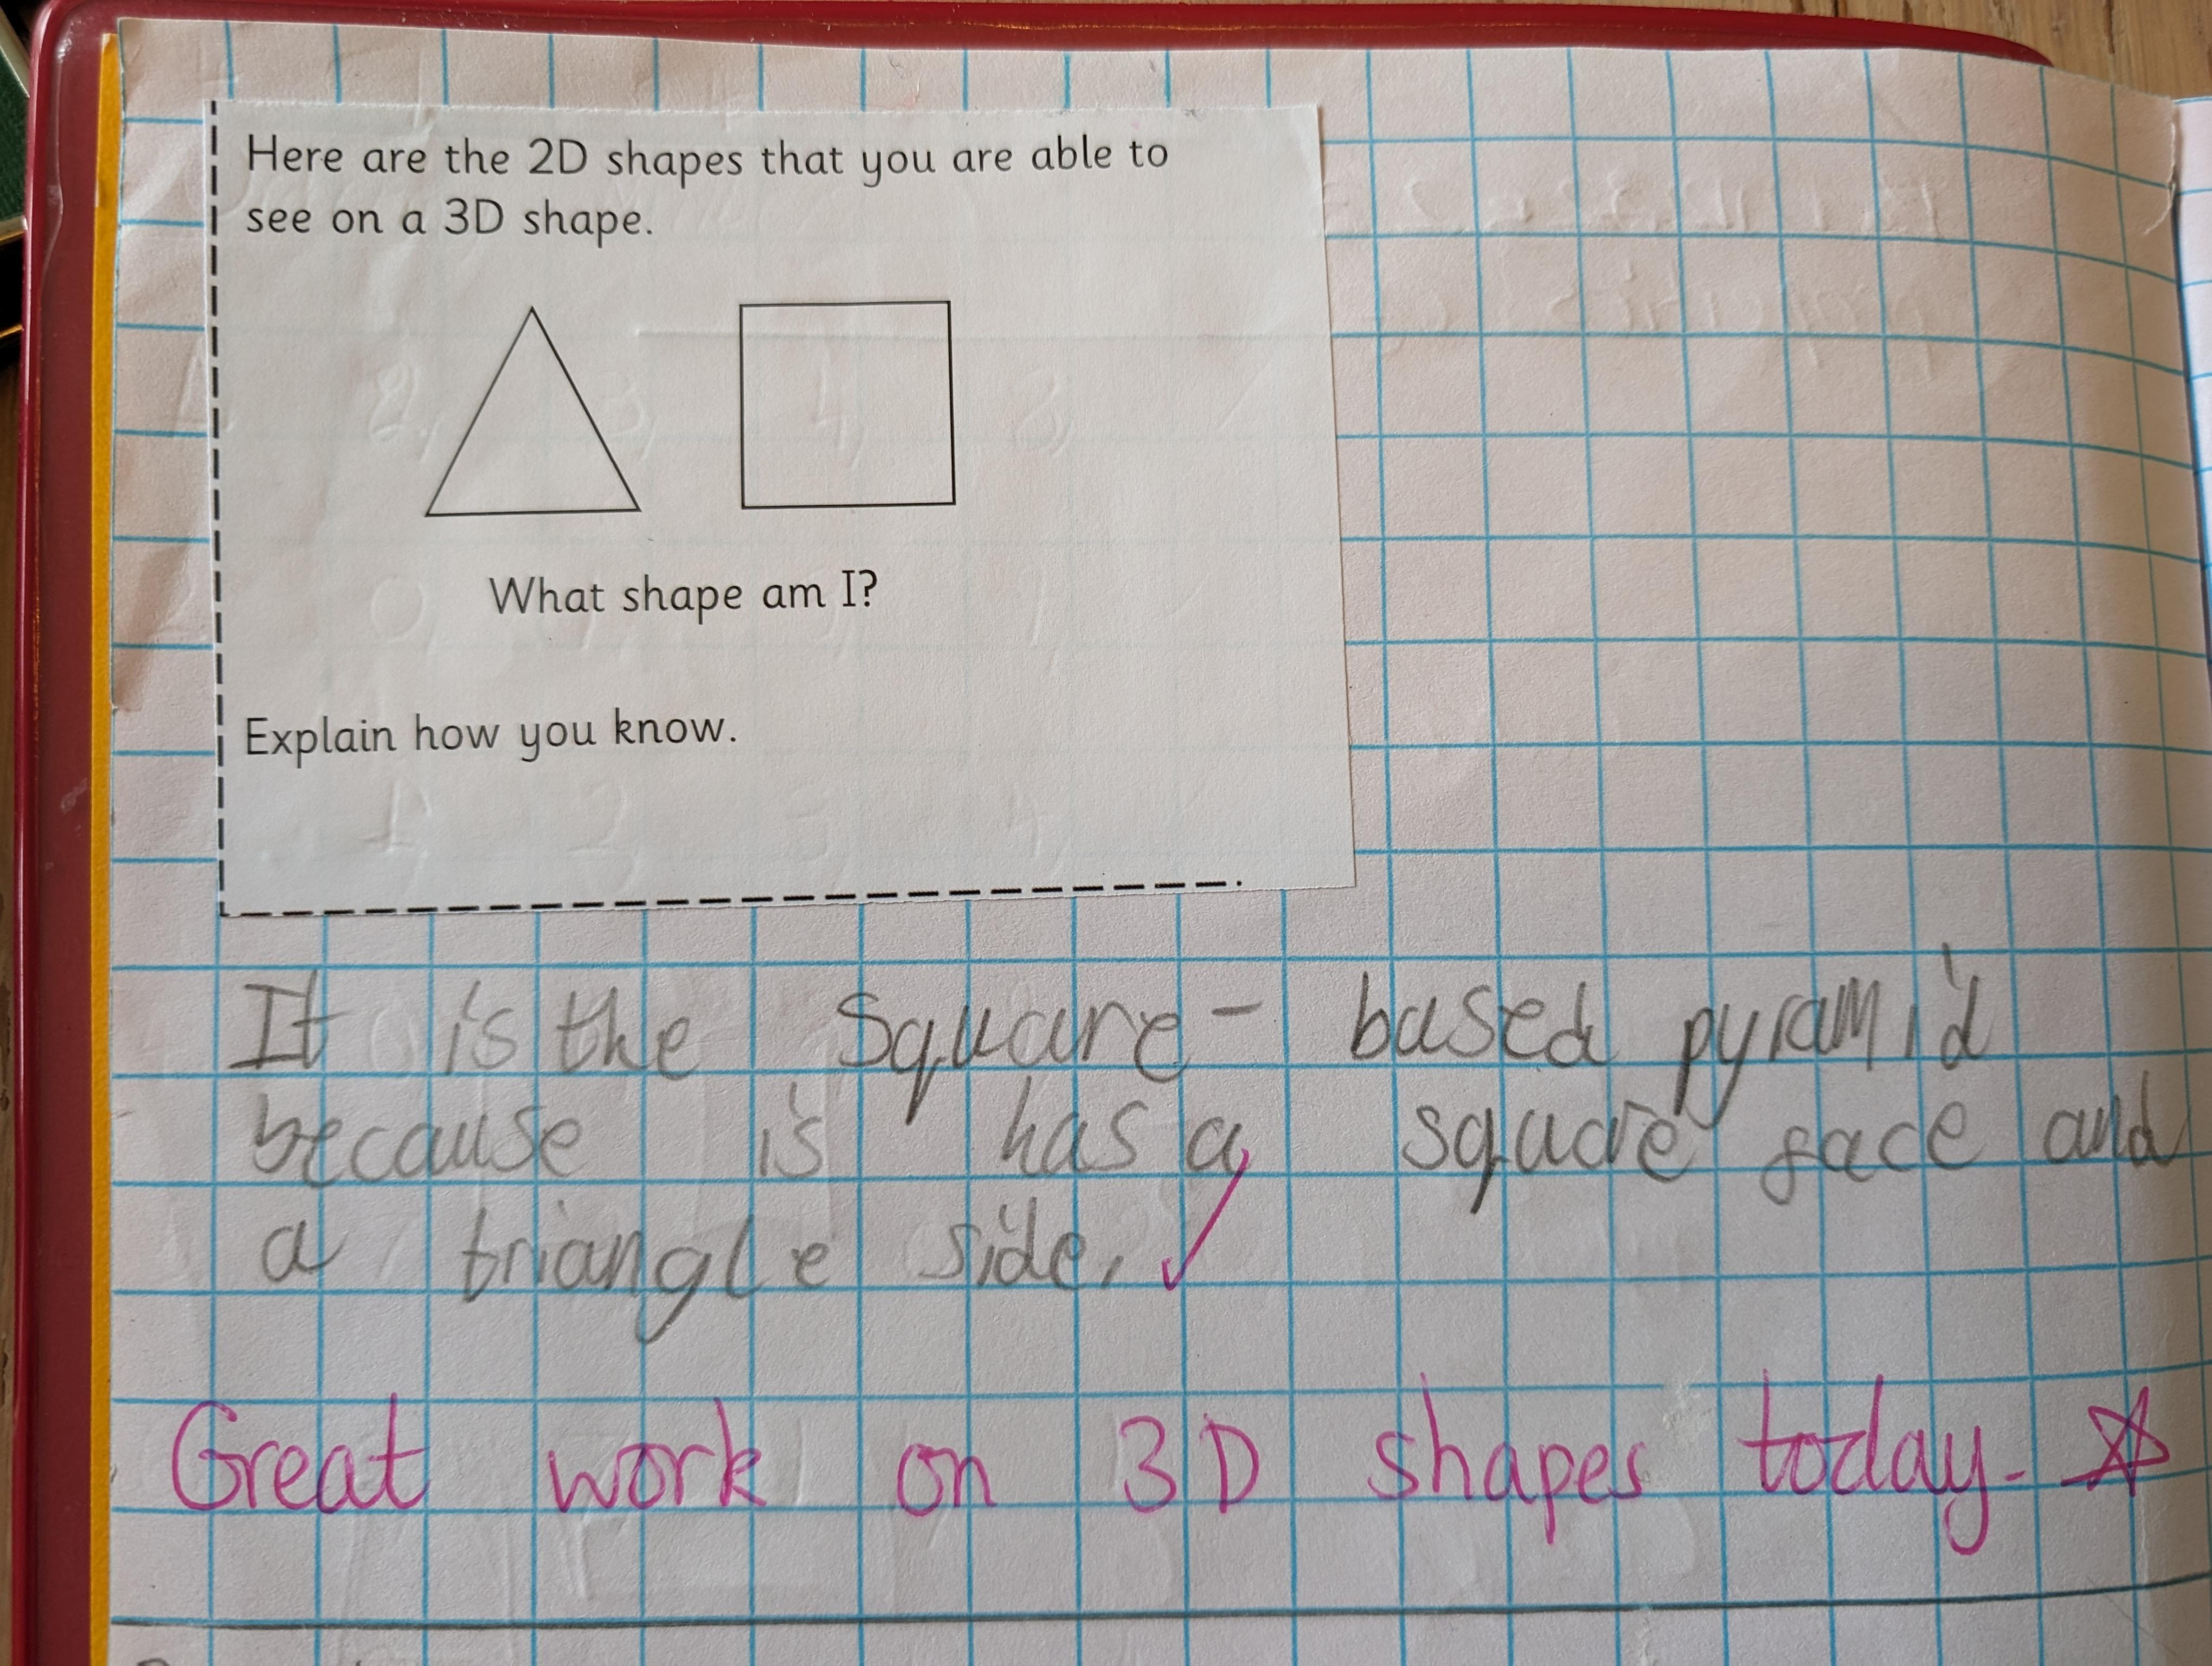 Here are the 2D shapes that you are able to
see on a 3D shape.
What shape am I?
Explain how you know.
It is the square- based pyramid
because is has a square face and
a triangle side.
Great work on 3D shapes today.